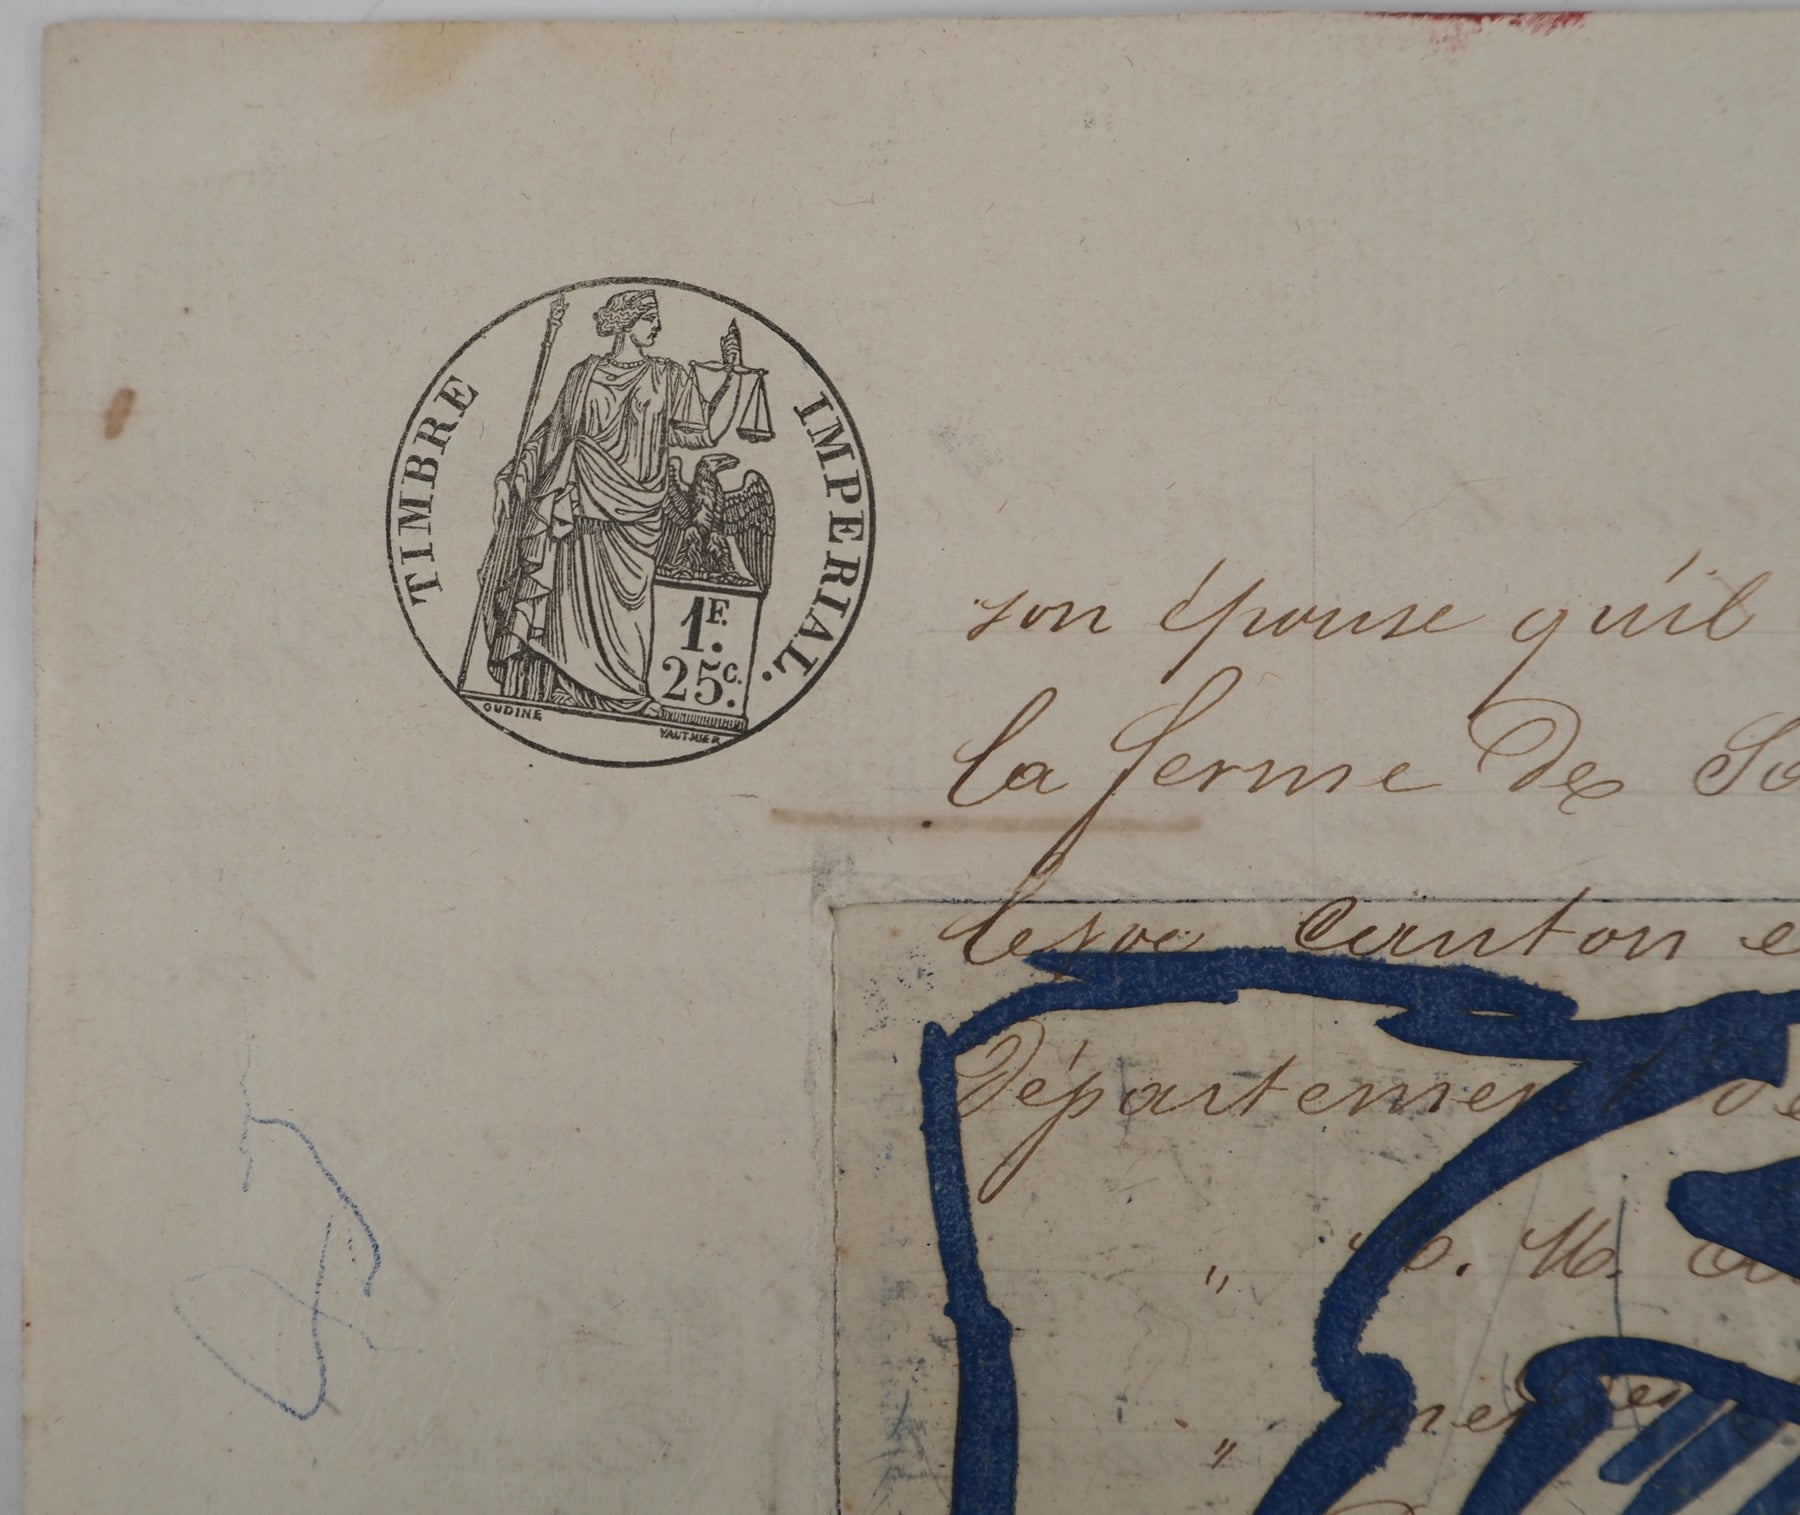 TIMBRE IMPERIAL.
1F.
25c.
OUDINE
VAUTHIER
son épouse qu'il
la ferme de So
canton e
Département de
" M.
"